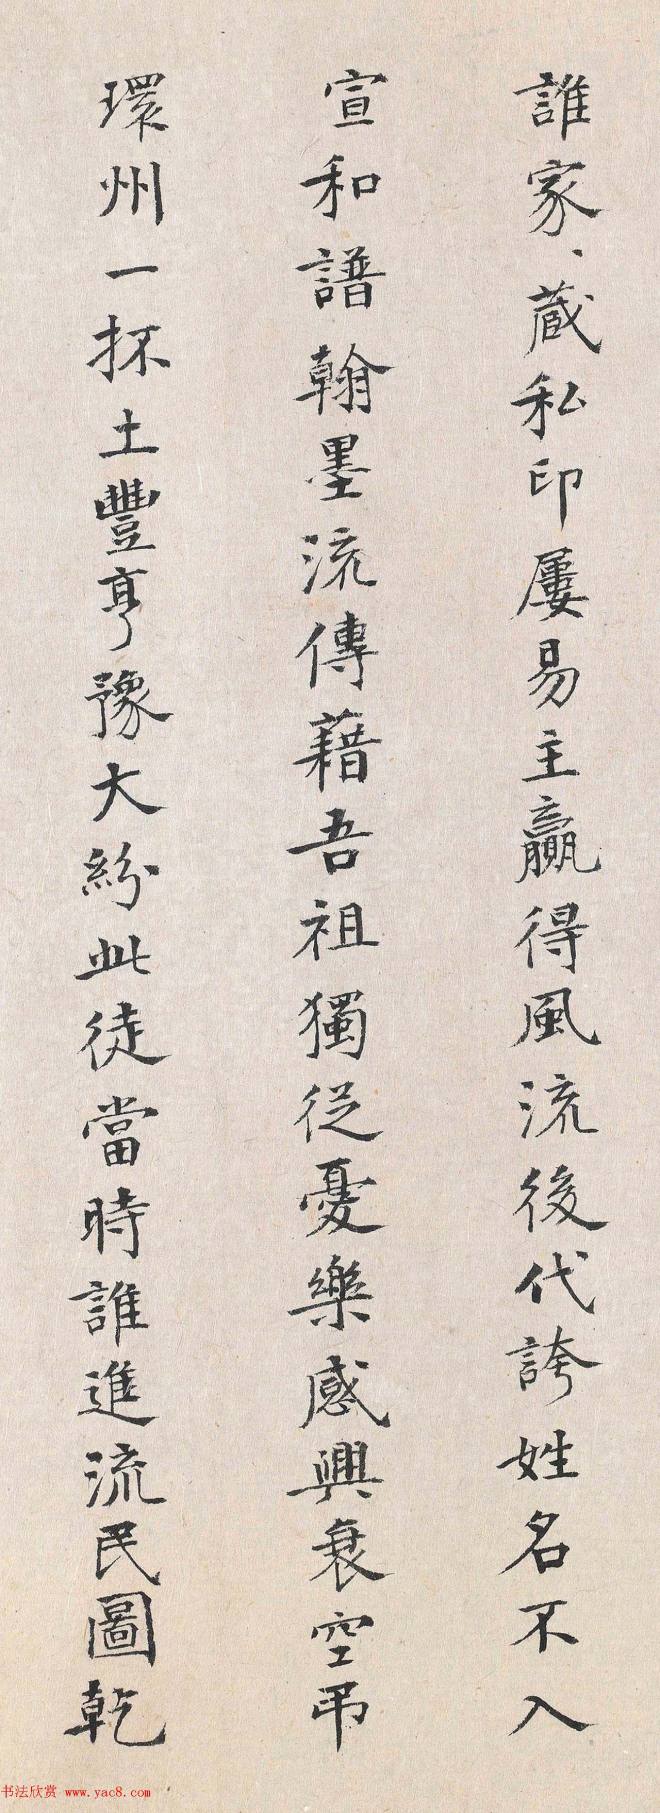 誰家、蔵私印屢易主贏得風流後代誇姓名不入
宣和譜翰墨流傳藉吾祖獨從憂樂感興衰空弔
環州一抔土豐亨豫大紛此徒當時誰進流民圖乾
书法欣赏 www.yac8.com